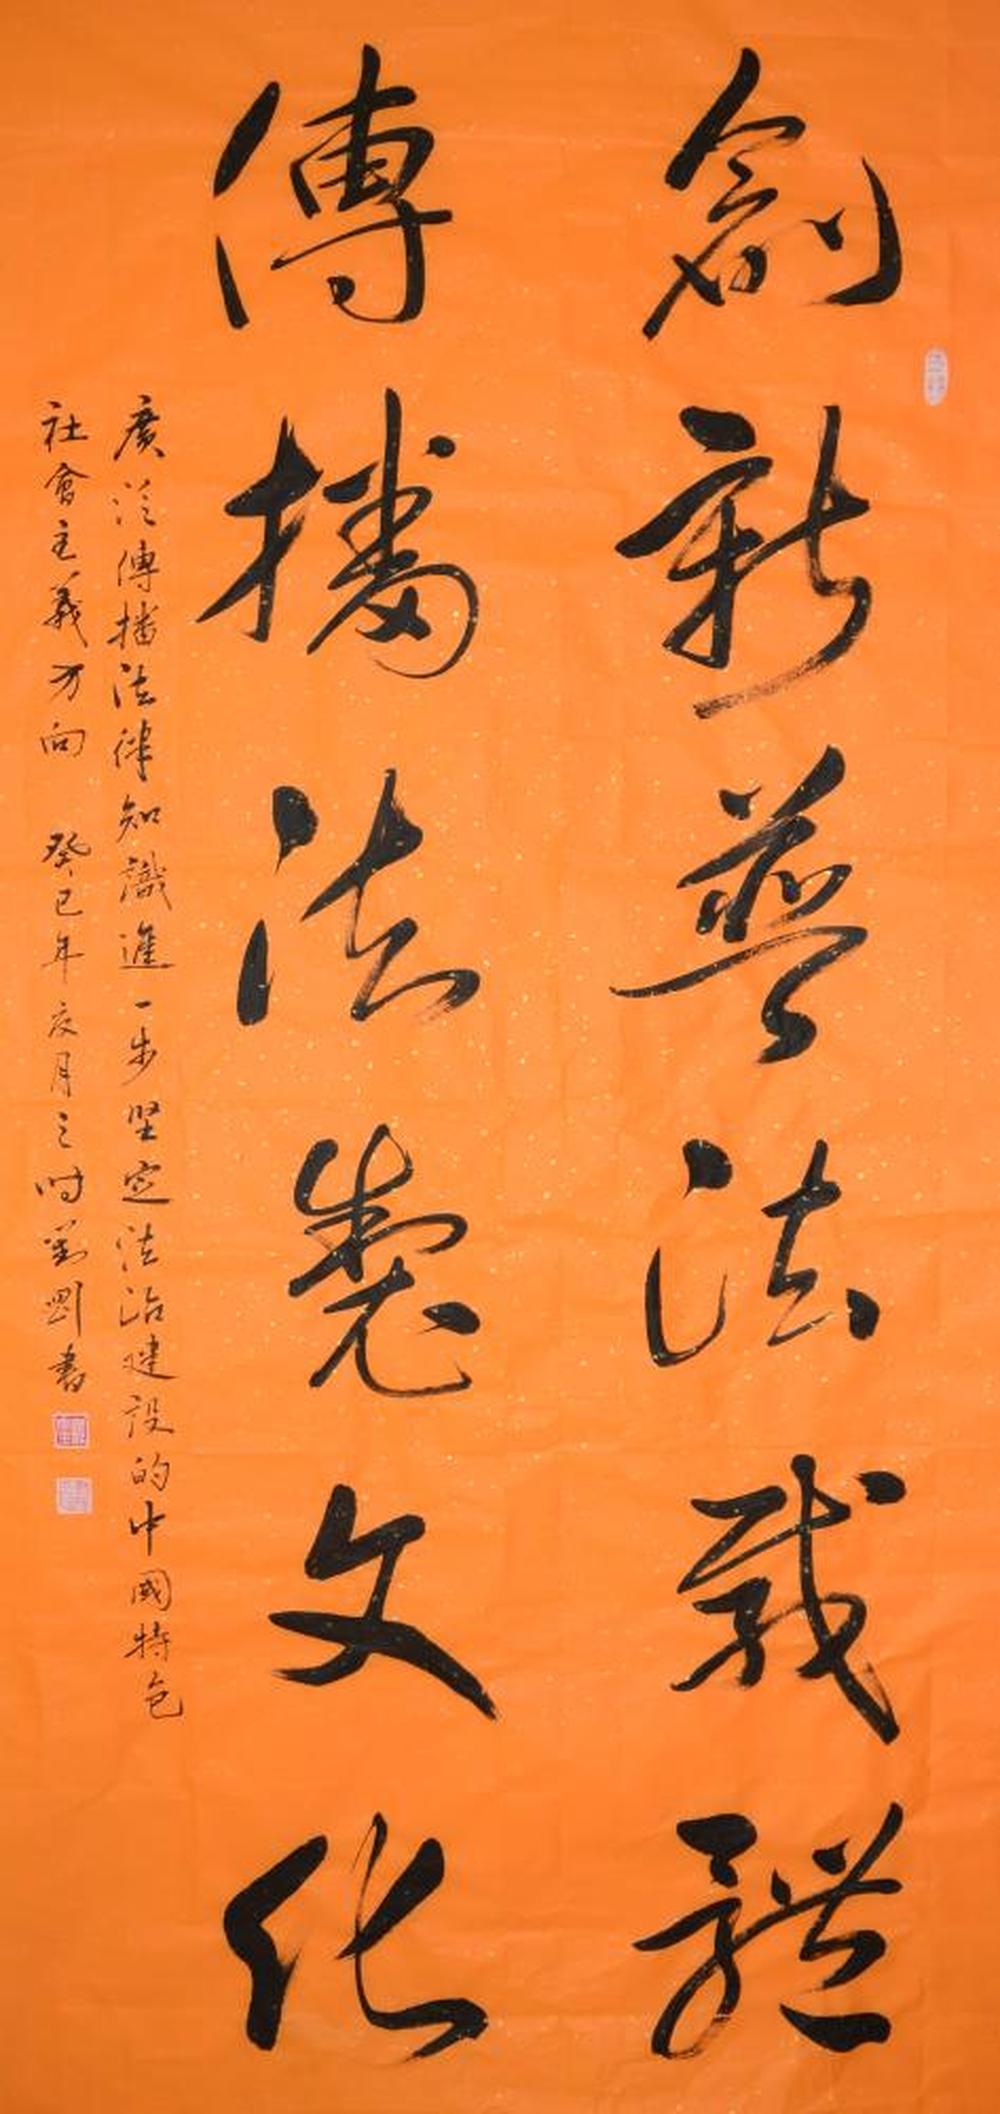 創新普法載體
傳播法製文化
廣泛傳播法律知識進一步坚定法治建设的中國特色
社會主義方向 癸巳年夜月之时劉剛書